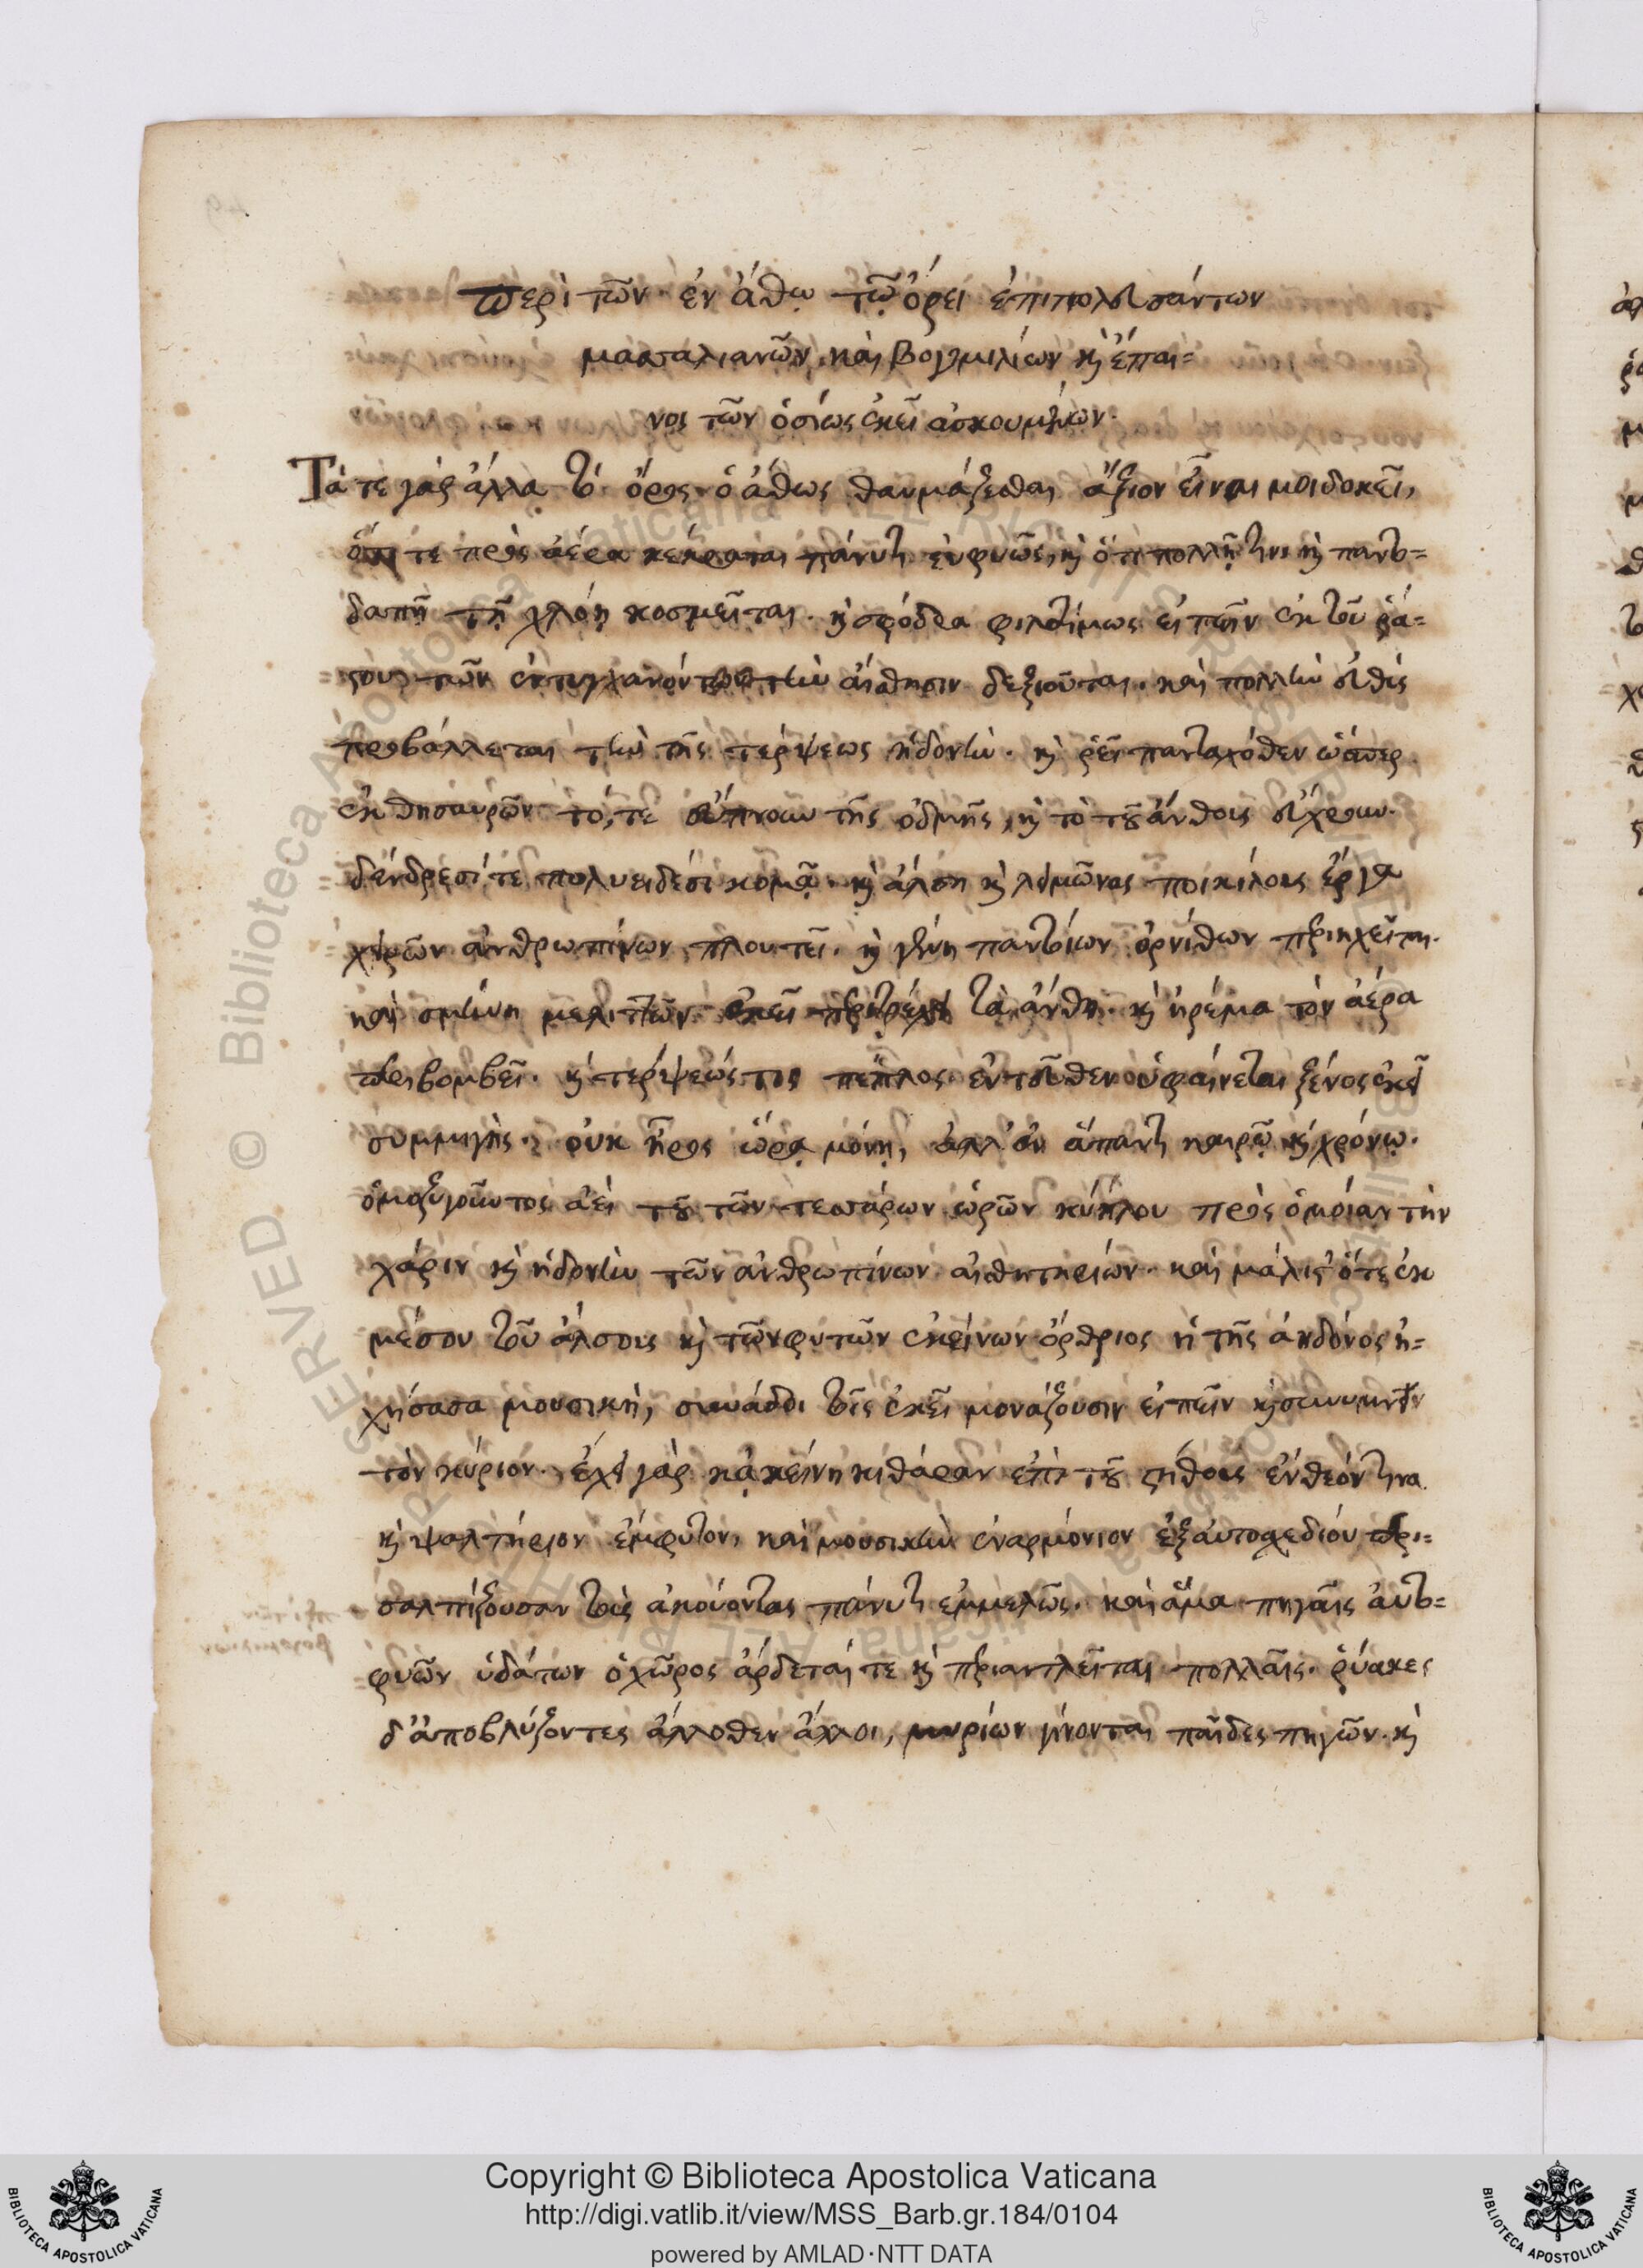 Περὶ τῶν ἐν ἄθῳ τῷ ὄρει ἐπιπολευσάντων
μασσαλιανῶν καὶ βογομιλίων κỳ ἔπαι=
νος τῶν ὁσίως ἐκεῖ ἀσκουμένων.
Τά τε γὰρ ἄλλα τὸ ὄρος ὁ ἄθως θαυμάζεσθαι ἄξιον εἶναι μοι δοκεῖ,
ὅτι τε πρὸς ἀέρα κέκραται πάνυ τι εὐφυῶς, κỳ ὅτι πολλῇ τινι κỳ παντο=
δαπῇ τῇ χλόῃ κοσμεῖται. κỳ σφόδρα φιλοτίμως εἰπεῖν ἐκ τοῦ ῥά=
στου τῶν ἐντυγχανόντων τὴν αἴσθησιν δεξιοῦται. καὶ πολλὴν εὐθὺς
προβάλλεται τὴν τῆς τέρψεως ἡδονήν. κỳ ῥεῖ πανταχόθεν ὥσπερ
ἐκ θησαυρῶν τό, τε εὔπνουν τῆς ὀδμῆς, κỳ τὸ τοῦ ἄνθους εὔχρουν.
δένδρεσί τε πολυειδέσι κομᾷ. κỳ ἄλση κỳ λειμῶνας ποικίλους ἔργα
χειρῶν ἀνθρωπίνων πλουτεῖ. κỳ γένη παντοίων ὀρνίθων περιηχεῖται.
καὶ σμήνη μελιττῶν ἐκεῖ περιτρέχει τὰ ἄνθη. κỳ ἠρέμα τὸν ἀέρα
περιβομβεῖ. κỳ τέρψεώς τις πέπλος ἐντεῦθεν ὑφαίνεται ξένος ἐκεῖ
συμμιγής. οὐκ ἦρος ὥρᾳ μόνῃ, ἀλλ' ἐν ἅπαντι καιρῷ κỳ χρόνῳ.
ὁμοζυγοῦντος ἀεὶ τοῦ τῶν τεσσάρων ὡρῶν κύκλου πρὸς ὁμοίαν τὴν
χάριν κỳ ἡδονὴν τῶν ἀνθρωπίνων αἰσθητηρίων. καὶ μάλισθ' ὅτε ἐκ
μέσου τοῦ ἄλσους κỳ τῶν φυτῶν ἐκείνων ὄρθριος ἡ τῆς ἀηδόνος ἠ=
χήσασα μουσικὴ, συνᾴδοι τοῖς ἐκεῖ μονάζουσιν εἰπεῖν κỳ συνυμνεῖν
τὸν κύριον. ἔχει γὰρ κἀκείνη κιθάραν ἐπὶ τοῦ στήθους ἔνθεόν τινα
κỳ ψαλτήριον ἔμφυτον, καὶ μουσικὴν ἐναρμόνιον ἐξ αὐτοσχεδίου περι=
σαλπίζουσαν τοὺς ἀκούοντας πάνυ τι ἐμμελῶς. καὶ ἅμα πηγαῖς αὐτο=
φυῶν ὑδάτων ὁ χῶρος ἄρδεταί τε κỳ περιαντλεῖται πολλαῖς. ῥύακες
δ' ἀποβλύζοντες ἄλλοθεν ἄλλοι, μυρίων γίνονται παῖδες πηγῶν. κỳ
Copyright © Biblioteca Apostolica Vaticana
http://digi.vatlib.it/view/MSS_Barb.gr.184/0104
powered by AMLAD·NTT DATA
BIBLIOTECA APOSTOLICA VATICANA
BIBLIOTECA APOSTOLICA VATICANA